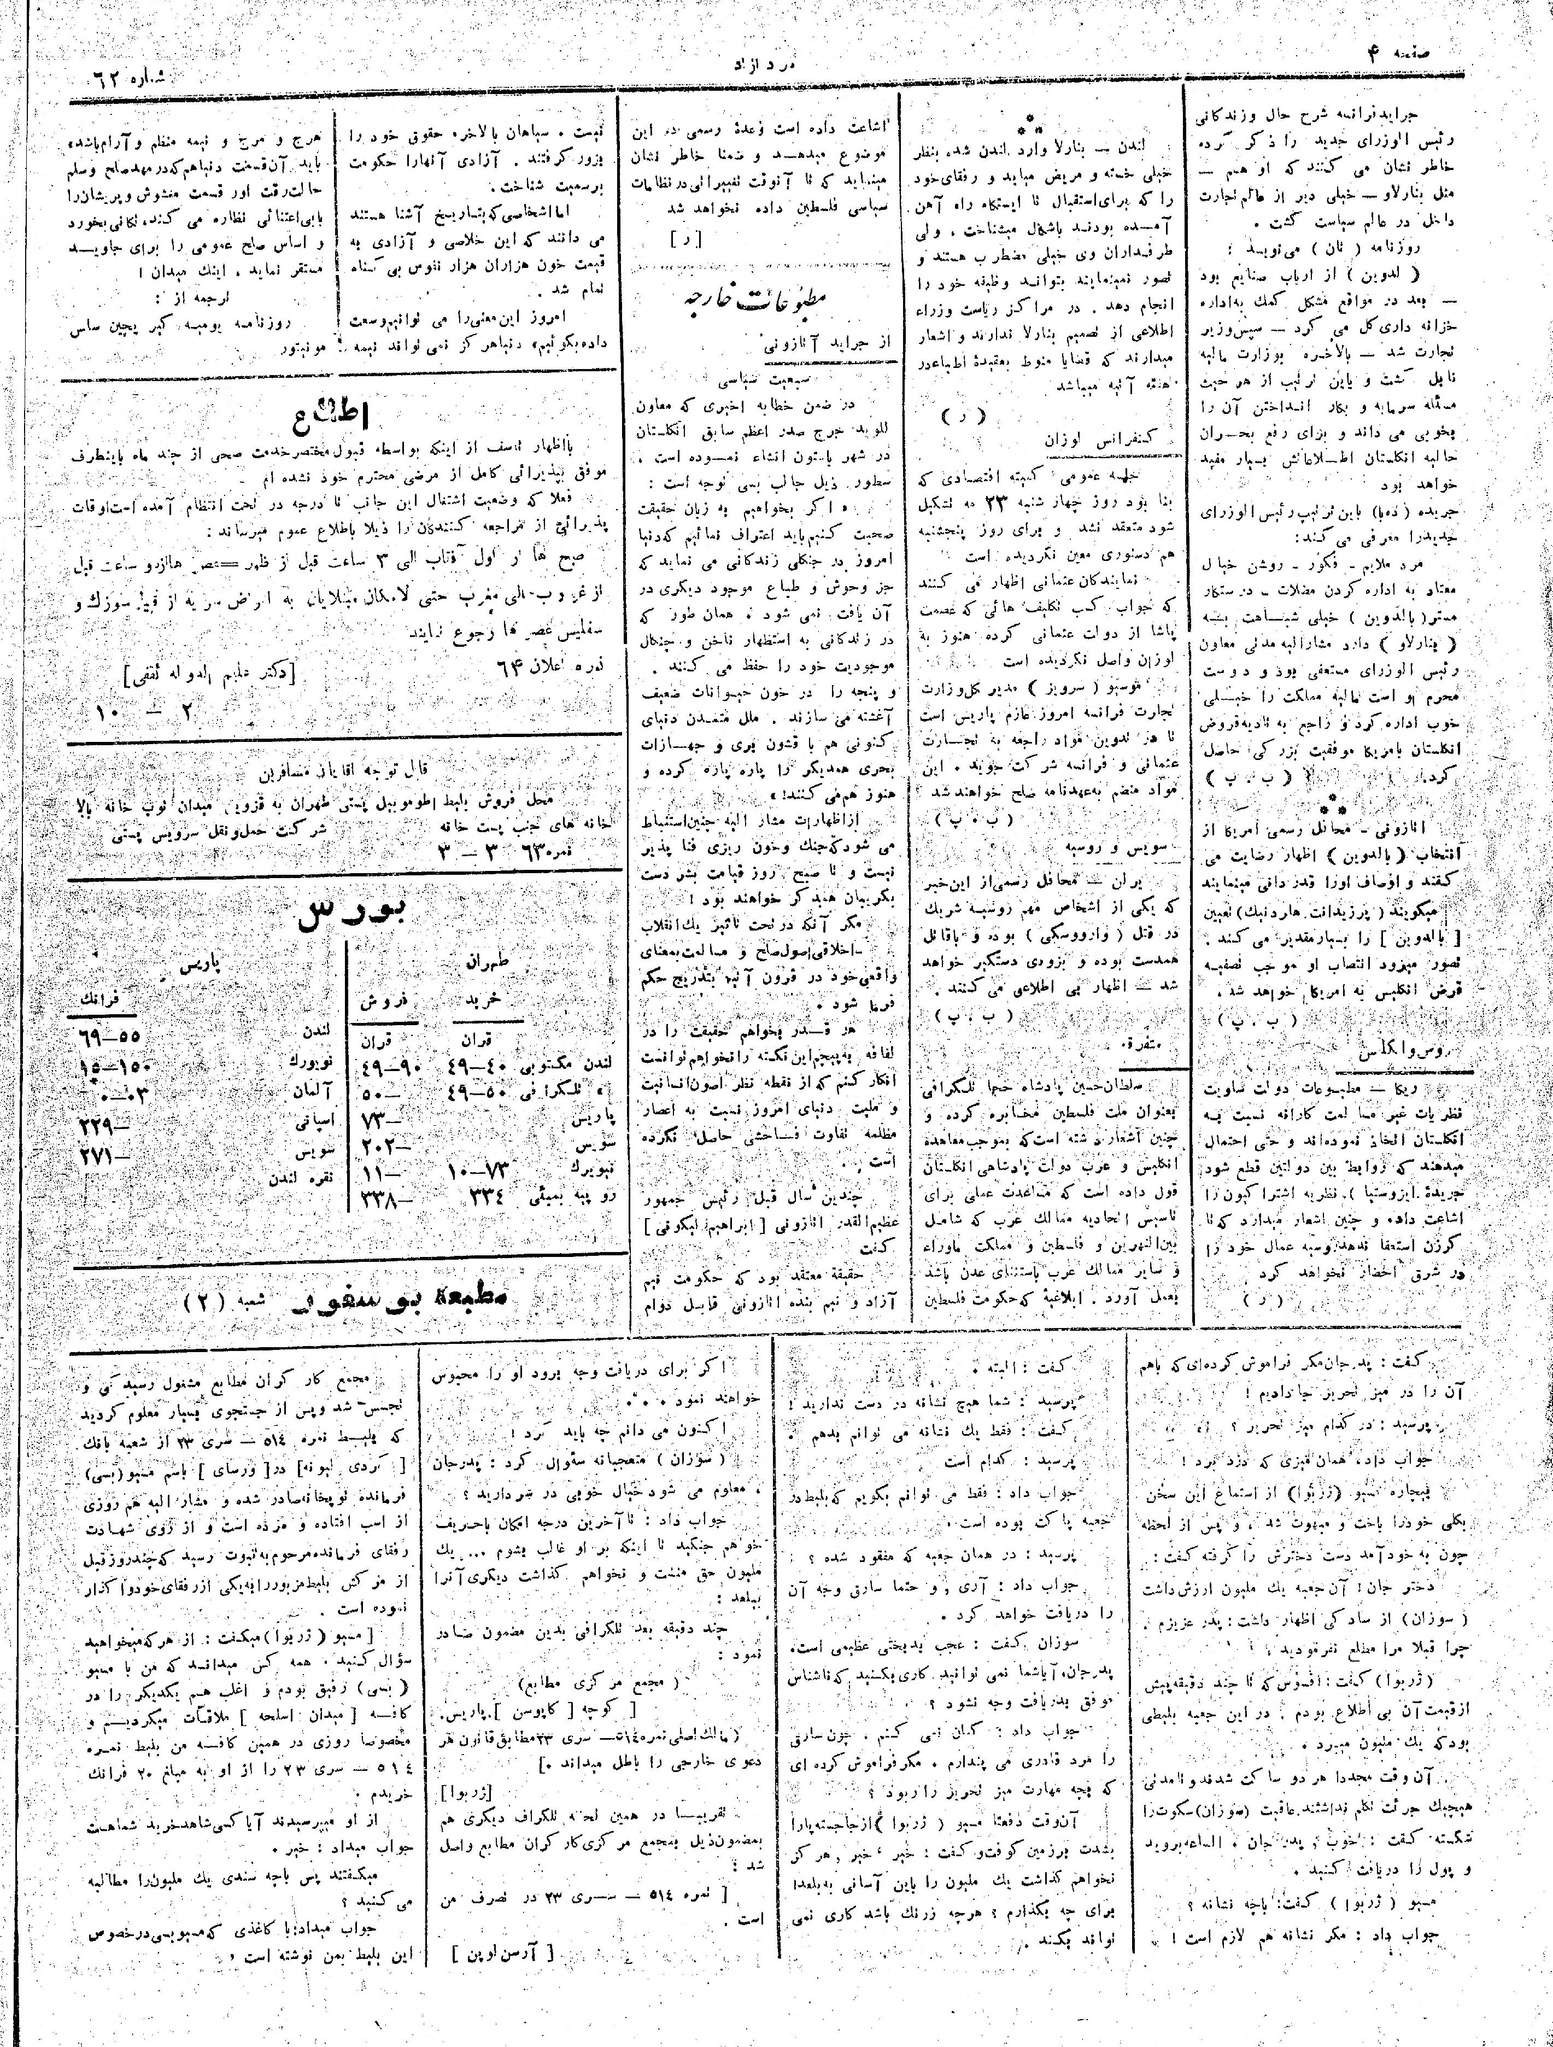 صفحه ۴
مرد آزاد
شماره ۶۲
جراید فرانسه شرح حال و زندگانی
رئیس الوزرای جدید را ذکر کرده
خاطر نشان می کنند که او هم —
مثل بنارلاو — خیلی دیر از عالم تجارت
داخل در عالم سیاست گشت .
روزنامه ( تان ) می‌نویسد :
( لدوین ) از ارباب صنایع بود
— بعد در مواقع مشکل کمک به اداره
خزانه داری کل می کرد — سپس وزیر
تجارت شد — بالاخره بوزارت مالیه
نایل گشت و باین ترتیب از هر حیث
مسئله سرمایه و بکار انداختن آن را
بخوبی می داند و برای رفع بحران
حالیه انگلستان اطلاعاتش بسیار مفید
خواهد بود
جریده ( ده‌با) باین ترتیب رئیس الوزرای
جدید را معرفی می کند :
مرد ملایم - فکور - روشن خیال
معتاد به اداره کردن معضلات - درستکار
مستر( بالدوین ) خیلی شباهت به
( بنارلاو ) دارد مشارالیه مدتی معاون
رئیس الوزرای مستعفی بود و دوست
محرم او است مالیه مملکت را خیلی
خوب اداره کرد و راجع به تادیه قروض
انگلستان بامریکا موفقیت بزرگی حاصل
کرد. ( ب . پ )
اتازونی - محافل رسمی آمریکا از
انتخاب ( بالدوین ) اظهار رضایت می
کنند و اوصاف او را قدر دانی مینمایند
میگویند ( پرزیدانت هاردنیک) تعیین
[ بالدوین ] را بسیار مقدیر می کند .
تصور میرود انتصاب او موجب تصفیه
قرض انگلیس به امریکا خواهد شد .
( ب . پ )
روس و انگلیس
ریگا — مطبوعات دولت ساویت
نظریات غیر مسالمت کارانه نسبت به
انگلستان اتخاذ نموده‌اند و حتی احتمال
میدهند که روابط بین دولتین قطع شود
جریدهٔ (ایزوستیا ) نظریه اشتراکیون را
اشاعت داده و چنین اشعار میدارد که تا
کرزن استعفا ندهد روسیه عمال خود را
در شرق احضار نخواهد کرد
( ر )
لندن — بنارلا وارد لندن شد. بنظر
خیلی خسته و مریض میاید و رفقای خود
را که برای استقبال تا ایستگاه راه آهن
آمده بودند باشکال میشناخت . ولی
طرفداران وی خیلی مضطرب هستند و
تصور نمینمایند بتواند وظیفه خود را
انجام دهد . در مراکز ریاست وزراء
اطلاعی از تصمیم بنارلا ندارند و اشعار
میدارند که قضایا منوط بعقیدهٔ اطباء در
هفته آتیه میباشد
( ر )
کنفرانس لوزان
جلسه عمومی کمیته اقتصادی که
بنا بود روز چهار شنبه ۲۳ مه تشکیل
شود منعقد نشد و برای روز پنجشنبه
هم دستوری معین نگردیده است
نمایندگان عثمانی اظهار می کنند
که جواب کسب تکلیف هائی که عصمت
پاشا از دولت عثمانی کرده هنوز به
لوزان واصل نگردیده است
موسیو ( سرویز ) مدیر کل وزارت
تجارت فرانسه امروز عازم پاریس است
تا در تدوین مواد راجعه به تجارت
عثمانی و فرانسه شرکت جوید . این
مواد منضم به عهدنامه صلح خواهند شد
( ب . پ )
سویس و روسیه
برن — محافل رسمی از این خبر
که یکی از اشخاص مهم روسیه شریک
در قتل ( وارووسکی ) بوده و با قاتل
همدست بوده و بزودی دستگیر خواهد
شد — اظهار بی اطلاعی می کنند .
( ب . پ )
متفرقه
سلطان حسین پادشاه حجاز تلگرافی
بعنوان ملت فلسطین مخابره کرده و
چنین اشعار داشته است که بموجب معاهده
انگلیس و عرب دولت پادشاهی انگلستان
قول داده است که مساعدت عملی برای
تاسیس اتحادیه ممالک عرب که شامل
بین‌النهرین و فلسطین و مملکت ماوراء
و سایر ممالک عرب باستثنای عدن باشد
بعمل آورد . ابلاغیهٔ که حکومت فلسطین
اشاعت داده است وعدهٔ رسمی در این
موضوع میدهد و ضمنا خاطر نشان
مینماید که تا آنوقت تغییراتی در نظامات
سیاسی فلسطین داده نخواهد شد
[ ر ]
مطبوعات خارجه
از جراید آتازونی
سبعیت سیاسی
در ضمن خطابه اخیری که معاون
للوید جرج صدر اعظم سابق انگلستان
در شهر باستون انشاء نموده است .
سطور ذیل جالب بسی توجه است :
« اگر بخواهیم به زبان حقیقت
صحبت کنیم باید اعتراف نمائیم که دنیا
امروز بدر جنگلی زندگانی می نماید که
جز وحوش و طباع موجود دیگری در
آن یافت نمی شود . همان طور که
در زندگانی به استظهار ناخن و چنگال
موجودیت خود را حفظ می کنند .
و پنجه را در خون حیوانات ضعیف
آغشته می سازند . ملل متمدن دنیای
کنونی هم با قشون بری و جهازات
بحری همدیگر را پاره پاره کرده و
هنوز هم می کنند! »
از اظهارات مشار الیه چنین استنباط
می شود که جنگ و خون ریزی فنا پذیر
نیست و تا صبح روز قیامت بشر دست
بگریبان همدیگر خواهند بود !
مگر آنکه در تحت تاثیر یک انقلاب
اخلاقی اصول صلح و مسالمت بمعنای
واقعی خود در قرون آتیه بتدریج حکم
فرما شود .
هر قدر بخواهم حقیقت را در
لفافه به پیچم این نکته را نخواهم توانست
انکار کنم که از نقطه نظر اصول انسانیت
و ملیت دنیای امروز نسبت به اعصار
مظلمه تفاوت فاحشی حاصل نکرده
است . .
چندین سال قبل رئیس جمهور
عظیم القدر اتازونی [ ابراهیم لینکونی ]
گفت
حقیقة معتقد بود که حکومت نیم
آزاد و نیم بنده اتازونی قابل دوام
نیست . سیاهان بالاخره حقوق خود را
بزور گرفتند . آزادی آنها را حکومت
برسمیت شناخت .
اما اشخاصی که بتاریخ آشنا هستند
می دانند که این خلاصی و آزادی به
قیمت خون هزاران هزار نفوس بی گناه
تمام شد .
امروز این معنی را می توانیم وسعت
داده بگوئیم، دنیا هرگز نمی تواند نیمه
هرج و مرج و نیمه منظم و آرام باشد،
باید آن قسمت دنیا هم که در مهد صلح و سلم
حالت رقت آور قسمت مغشوش و پریشان را
بابی‌اعتنائی نظاره می کند، تکانی بخورد
و اساس صلح عمومی را برای جاوید
مستقر نماید . اینک میدان !
ترجمه از :
روزنامه یومیه کبر یچین ساس
مونیتور
اطلاع
بااظهار تاسف از اینکه بواسطه قبول مختصر خدمت صحی از چند ماه باینطرف
موفق بپذیرائی کامل از مرضی محترم خود نشده ام .
فعلا که وضعیت اشتغال این جانب تا درجه در تحت انتظام آمده است اوقات
پذیرائی از مراجعه کنندگان را ذیلا باطلاع عموم میرساند :
صبح ها از اول آفتاب الی ۳ ساعت قبل از ظهر — عصر ها از دو ساعت قبل
از غروب الی مغرب حتی الامکان مبتلایان به امراض سریه از قبیل سوزاک و
سفلیس عصر ها رجوع نمایند
نمره اعلان ۶۴ [دکتر علیم الدوله ثقفی]
۲ — ۱۰
قابل توجه آقایان مسافرین
محل فروش بلیط اطوموبیل پستی طهران به قزوین میدان توپ خانه بالا
خانه های جنب پست خانه شرکت حمل و نقل سرویس پستی
نمره ۶۳ ۳ — ۳
بورس
طهران
خرید فروش
قران قران
لندن مکتوبی ۴۰—۴۹ ۹۰—۴۹
« تلگرافی ۵۰—۴۹ —۵۰
پاریس —۷۳
سویس —۲۰۲
نیویرک ۷۳—۱۰ —۱۱
روپیه بمبئی ۳۳۴ —۳۳۸
پاریس
فرانک
لندن ۵۵—۶۹
نویورک ۱۵۰—۱۵
آلمان ۰۳—۰
اسپانی —۲۲۹
سویس —۲۷۱
نقره لندن
مطبعه بوسفور شعبه (۲)
گفت : پدر جان مگر فراموش کرده‌ای که باهم
آن را در میز تحریر جا دادیم !
پرسید : در کدام میز تحریر ؟
جواب داد، همان میزی که دزد برد !
بیچاره مسیو (ژربوا) از استماع این سخن
بکلی خود را باخت و مبهوت شد . و پس از لحظه
چون به خود آمد دست دخترش را گرفته گفت :
دختر جان ! آن جعبه یک ملیون ارزش داشت
(سوزان) از سادگی اظهار داشت : پدر عزیزم .
چرا قبلا مرا مطلع نفرمودید ؟
(ژربوا) گفت : افسوس که تا چند دقیقه پیش
از قیمت آن بی اطلاع بودم . در این جعبه بلیطی
بود که یک ملیون میبرد .
آن وقت مجددا هر دو ساکت شدند و تا مدتی
هیچیک جرئت تکلم نداشتند. عاقبت (سوزان) سکوت را
شکسته گفت : خوب، پدر جان ، الساعه بروید
و پول را دریافت کنید .
مسیو (ژربوا) گفت: باچه نشانه ؟
جواب داد : مگر نشانه هم لازم است !
گفت : البته .
پرسید : شما هیچ نشانه در دست ندارید !
گفت : فقط یک نشانه می توانم بدهم .
پرسید : کدام است
جواب داد : فقط می توانم بگویم که بلیط در
جعبه پاکت بوده است .
پرسید : در همان جعبه که مفقود شده ؟
جواب داد : آری . و حتما سارق وجه آن
را دریافت خواهد کرد .
سوزان گفت : عجب بدبختی عظیمی است.
پدر جان، آیا شما نمی توانید کاری بکنید که ناشناس
موفق بدریافت وجه نشود ؟
جواب داد : گمان نمی کنم . چون سارق
را مرد قادری می پندارم . مگر فراموش کرده ای
که بچه مهارت میز تحریر را ربود ؟
آن وقت دفعتا مسیو ( ژربوا ) از جا جسته پا را
بشدت بر زمین کوفت و گفت : خیر ، خیر . هرگز
نخواهم گذاشت یک ملیون را باین آسانی به بلعد!
برای چه بگذارم ؟ هرچه زرنگ باشد کاری نمی
تواند بکند .
اگر برای دریافت وجه برود او را محبوس
خواهند نمود . . .
اکنون می دانم چه باید کرد !
(سوزان ) متعجبانه سئوال کرد : پدر جان
، معلوم می شود خیال خوبی در سر دارید ؟
جواب داد : تا آخرین درجه امکان با حریف
خواهم جنگید تا اینکه بر او غالب بشوم ... یک
ملیون حق منست و نخواهم گذاشت دیگری آنرا
ببلعد :
چند دقیقه بعد تلگرافی بدین مضمون صادر
نمود :
( مجمع مرکزی مطابع)
[ کوچه [ کاپوسن ] پاریس.
(مالک اصلی نمره ۵۱۴— سری ۲۳ مطابق قانون هر
دعوی خارجی را باطل میداند .]
[ژربوا]
تقریبا در همین لحظه تلگراف دیگری هم
بمضمون ذیل بمجمع مرکزی کارگران مطابع واصل
شد :
[ نمره ۵۱۴ — سری ۲۳ در تصرف من
است .
[ آرسن لوپن ]
مجمع کارگران مطابع مشغول رسیدگی و
تجسس شد و پس از جستجوی بسیار معلوم گردید
که بلیط نمره ۵۱۴ — سری ۲۳ از شعبه بانک
[ کردی لیونه] در [ورسای ] باسم مسیو (بسی)
فرمانده توپخانه صادر شده و مشار الیه هم روزی
از اسب افتاده و مرده است و از روی شهادت
رفقای فرمانده مرحوم به ثبوت رسید که چند روز قبل
از مرگش بلیط مزبور را به یکی از رفقای خود واگذار
نموده است .
[ مسیو (ژربوا) میگفت : از هر که میخواهید
سؤال کنید . همه کس میدانند که من با مسیو
(بسی) رفیق بودم و اغلب هم یکدیگر را در
کافه [ میدان اسلحه ] ملاقات میکردیم و
مخصوصا روزی در همین کافه من بلیط نمره
۵۱۴ — سری ۲۳ را از او به مبلغ ۲۰ فرانک
خریدم .
از او میپرسیدند آیا کسی شاهد خرید شما هست
جواب میداد : خیر .
میگفتند پس باچه سندی یک ملیون را مطالبه
می کنید ؟
جواب میداد: با کاغذی که مسیو بسی در خصوص
این بلیط بمن نوشته است .